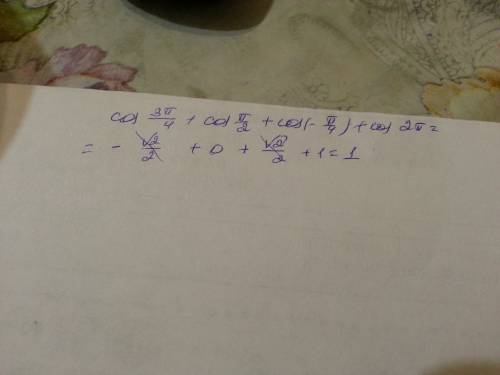 cos 3π/4 + cos π/2 + cos(-π/4) + cos 2π =
= - √2/2 + 0 + √2/2 + 1 = 1